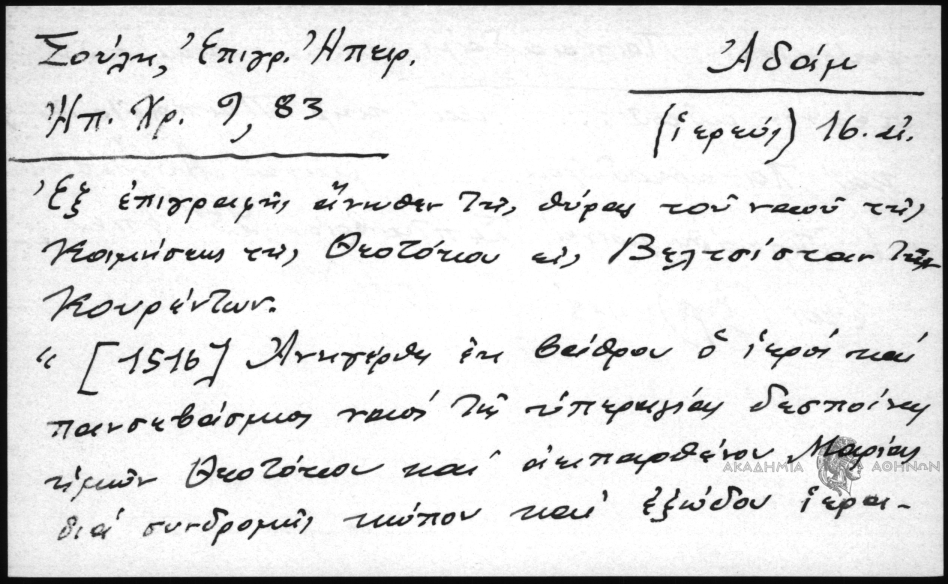 Σούλη, Ἐπιγρ. Ἠπειρ.
Ἠπ. Χρ. 9, 83
Ἀδάμ
(ἱερεύς) 16. αἰ.
Ἐξ ἐπιγραφῆς ἄνωθεν τῆς θύρας τοῦ ναοῦ τῆς
Κοιμήσεως τῆς Θεοτόκου εἰς Βελτσίσταν τῶν
Κουρέντων.
“ [1516] Ἀνηγέρθη ἐκ βάθρου ὁ ἱερός καί
πανσεβάσμιος ναός τῆς ὑπεραγίας δεσποίνης
ἡμῶν Θεοτόκου καί ἀειπαρθένου Μαρίας
διά συνδρομῆς κώπου καί ἐξώδου ἱεραι-
ΑΚΑΔΗΜΙΑ ΑΘΗΝΩΝ